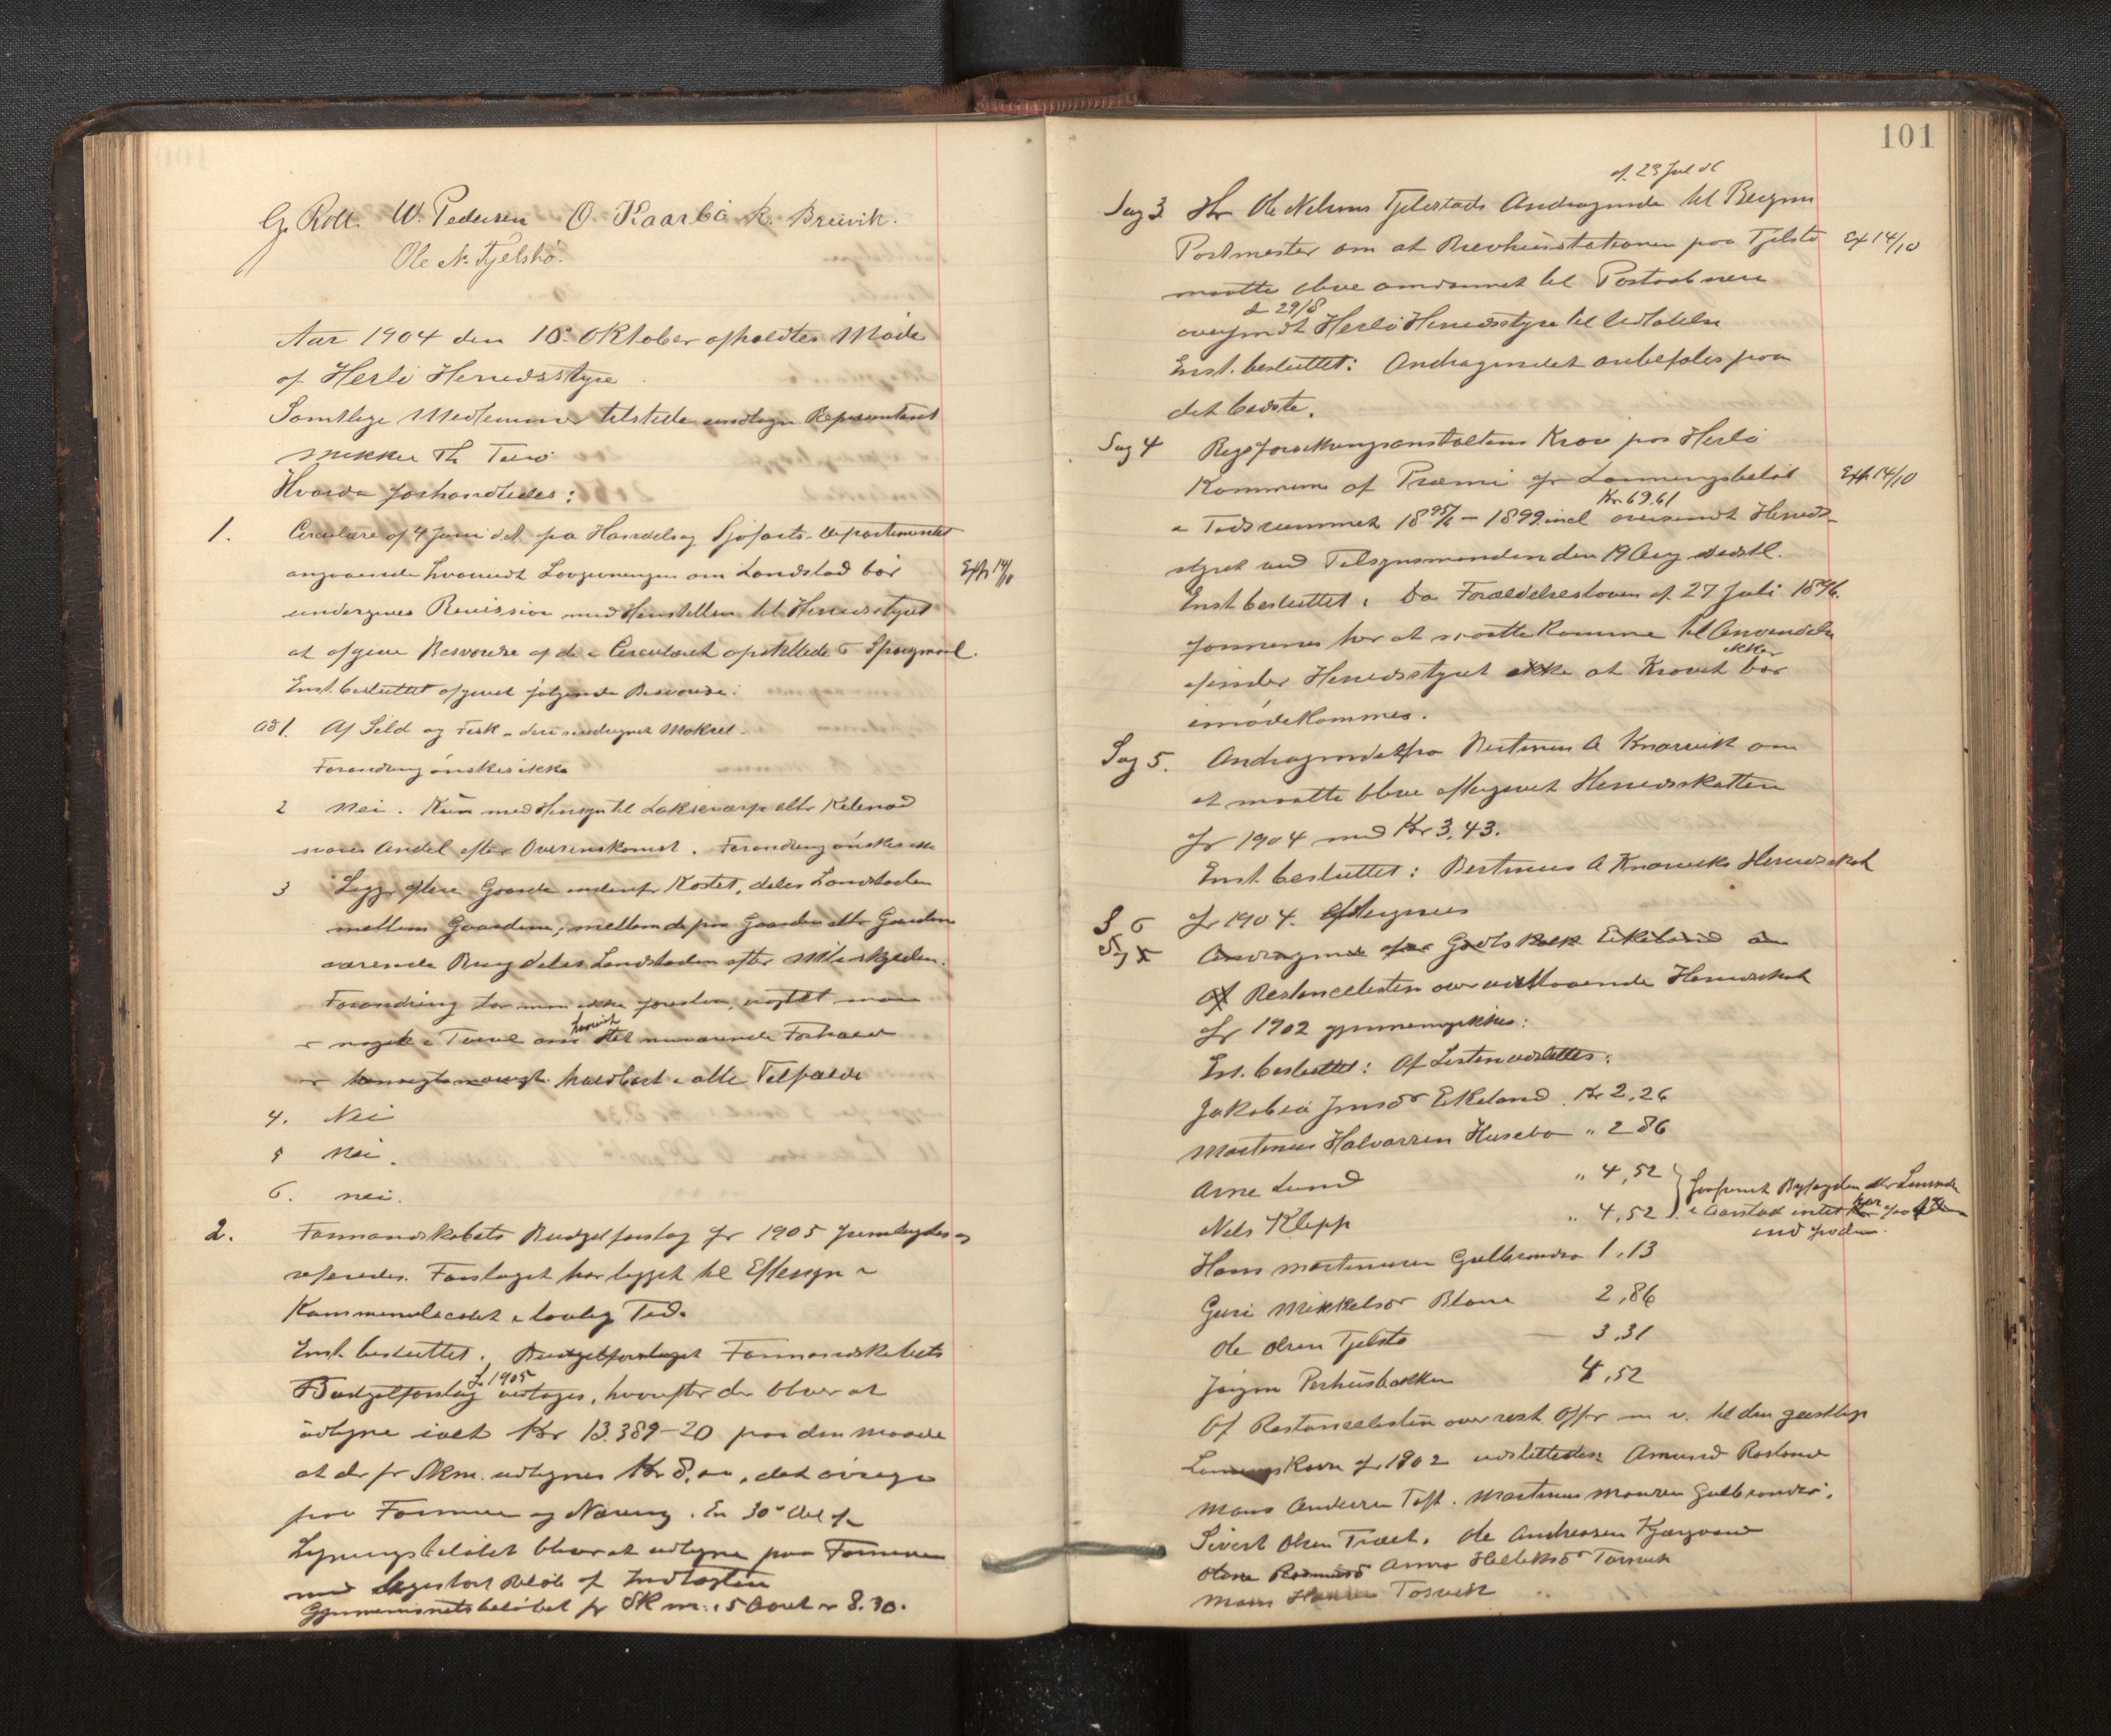 G. Roll. W. Pedersen O. Kaarbö R. Breivik.
Ole N. Tjelstø.
Aar 1904 den 10. Oktober afholdtes Møde
af Herlö Herredsstyre
Samtlige Medlemmer tilstede undtagen Repræsentant
Mikkel Th
Hvorda forhandledes:
1. Circulære af 4 Juni d.A. fra Handels og Sjöfarts-Departementet
angaaende hvorvidt Lovgivningen om Landslod bör
Exp 14/10
undergives Revision med Henstillen til Herredsstyret
at afgive Besvarelse af de i Circulæret opstillede 6 Spørgsmaal.
Enst. besluttet afgivet følgende Besvarelse:
ad 1. Af Sild og Fisk - deri indregnet Makrel.
Forandring önskes ikke
2 Nei. Kun med Hensyn til Laksevarp eller Kilenod
svares Andel efter Overenskomst. Forandring önskes ikke
3 Ligger flere Gaarde indenfor Kastet, deles Landsloden
mellem Gaardene; mellem de paa Gaarden eller Gaardene
værende Brug deles Landsloden efter Matrskylden.
Forandring tør man ikke foreslaa, uagtet man
er noget i Tvivl om hvorvidt det nuværende Forhold
er holdbart i alle Tilfælde
4. Nei
5 Nei.
6. nei.
2. Formandskabets Budgetforslag for 1905 fremlagdes og
refereredes. Forslaget har ligget til Eftersyn i
Kommunelocalet i lovlig Tid.
Enst. besluttet. Budgetforslaget Formandskabets
Budgetforslag f. 1905 vedtages, hvorefter der bliver at
udligne ialt Kr 13.389-20 paa den Maade
at der pr Skm. udlignes Kr 8,00, det øvrige
paa Formue og Næring. En 30te Del af
Ligningsbeløbet bliver at udligne paa Formuen
med ligestort Beløb af Indtægten
Gjennemsnitsbeløbet pr Skm. i 5 Aaret er 8.30.
101
af 23 Juli d.A.
Sag 3. Hr Ole Nelsens Tjelstads Andragende til Bergens
Postmester om at Brevhusstationen paa Tjelstø
Ex 14/10
maatte blive omdannet til Postaabneri
d 29/8
oversendt Herlö Herredsstyre til Udtalelse
Enst. besluttet: Andragendet anbefales paa
det bedste.
Sag 4 Rigsforsikringsanstaltens Krav paa Herlö
Kommune af Præmi for Lønningsbeløb
Exp 14/10
Kr. 69.61
i Tidsrummet 1895/6 - 1899 incl oversendt Herreds-
styret ved Tilsynsmanden den 19 Aug sidstl.
Enst besluttet: Da Forældelsesloven af 27 Juli 1896.
formenes her at maatte komme til Anvendelse
ikke
finder Herredsstyret ikke at Kravet bør
imødekommes.
Sag 5. Andragendet fra Bertinus A Knarvik om
at maatte blive eftergivet Herredsskatten
for 1904 med Kr 3,43.
Enst. besluttet: Bertinus A Knarviks Herredsskat
for 1904. eftergives
S 6
Andragende fra Eikeland om
Restancelisten over udestaaende Herredsskat
for 1902 gjennemgikkes:
Ens. besluttet: Af Listen udslettes:
Jakobia Jensdr Eikeland. Kr 2,26
Martinus Halvorsen Husebø " 2 86
Arne Lund " 4,52
Nels Klepp " 4,52
Hans Martinusen Gulbrandsø 1,13
Guri Mikkelsdr Blom 2,86
Ole Olsen Tjelstø — 3,31
Jörgen Perhusbakken 4,52
Af Restancelisten over rest. Offer m v. til den geistlige
for 1902 udslettedes: Amund Rosland
Mons Andersen Toft. Martinus Monsen Gulbrandsø.
Sivert Olsen Træet. Ole Andreasen Kjærgaard
Anna Torsvik
Mons Hansen Torsvik